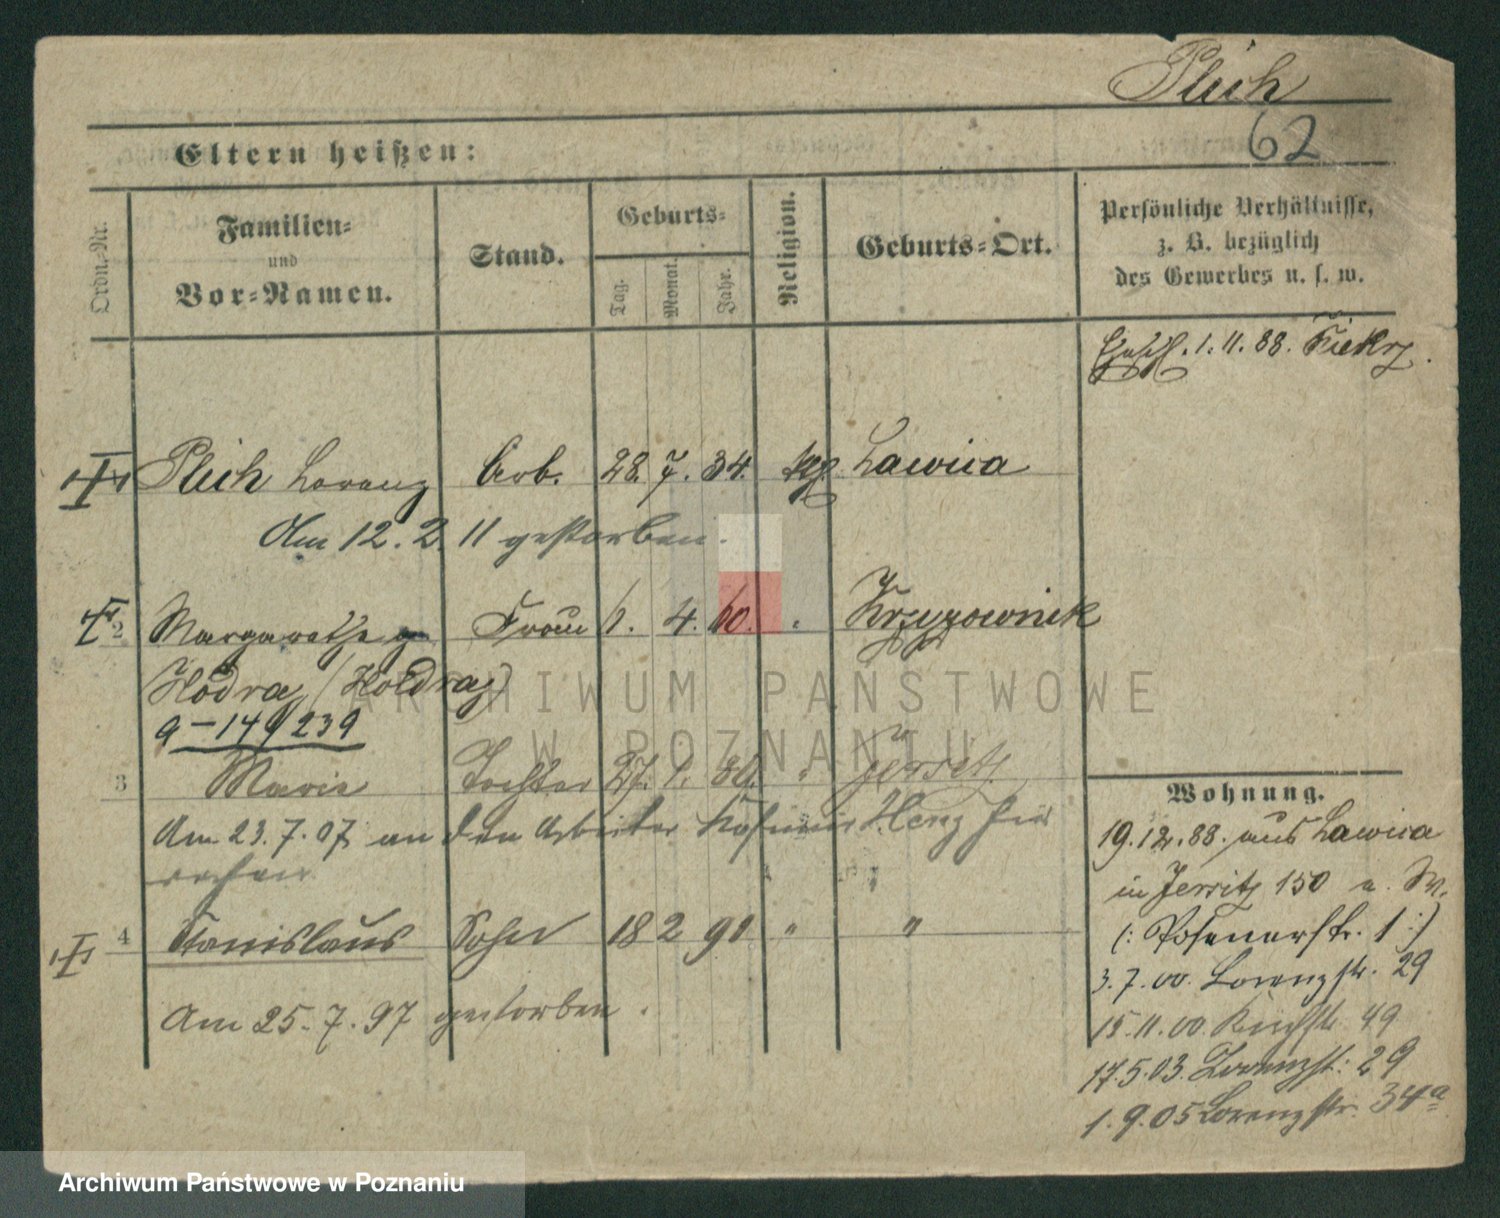 Plich
62
Eltern heißen:
Ordn.-Nr.
Familien-
und
Vor-Namen.
Stand.
Geburts-
Tag.
Monat.
Jahr.
Religion.
Geburts-Ort.
Persönliche Verhältnisse,
z. B. bezüglich
des Gewerbes u. s. w.
1. 11. 88. Kiekrz.
Plich Lorenz Arb. 28. 7. 34. Lawica
Am 12. 2. 11 gestorben.
2 Margarethe Frau 4. 60. Krzyzownik
Hodra (Holdraz)
9-14/239
3 Marie Tochter 27. Jersitz
Am 23. 7. 07 an den Arbeiter
4 Stanislaus Sohn 18 2 90 " "
Am 25. 7. 97 gestorben.
Wohnung.
19. 12. 88. aus Lawica
in Jersitz 150 a. W.
(: Posenerstr. 1 :)
3. 7. 00. Lorenzstr. 29
15. 11. 00 49
17. 5. 03. Lorenzstr. 29
1. 9. 05 Lorenzstr. 34a
ARCHIWUM PAŃSTWOWE
W POZNANIU
Archiwum Państwowe w Poznaniu